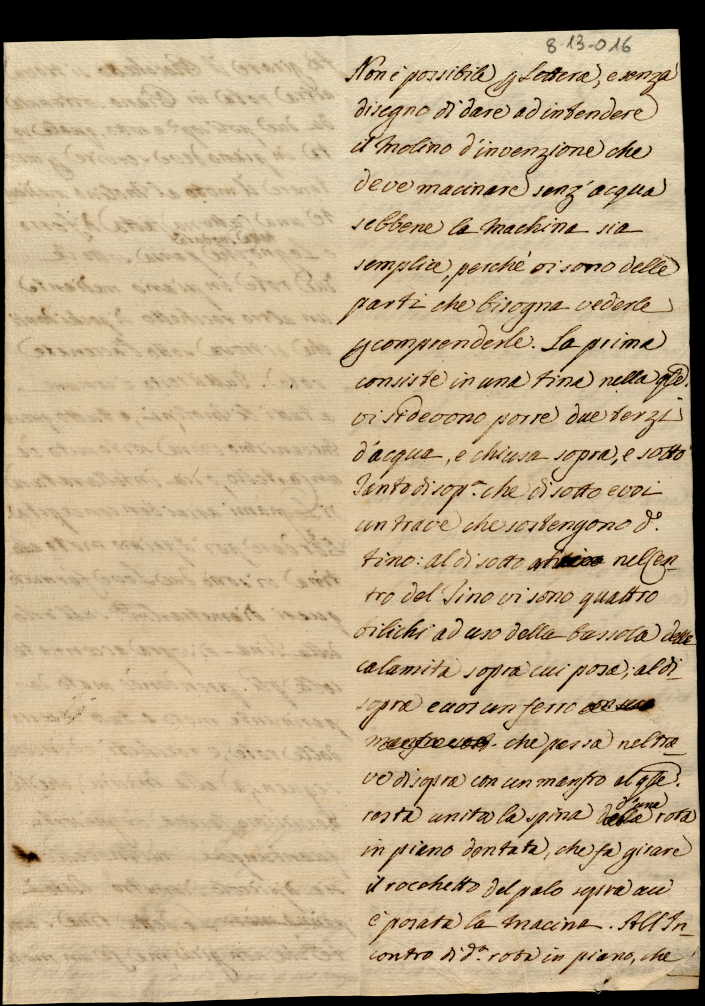 8-13-016
Non è possibile p lettera, e senza
disegno di dare ad intendere
il Molino d'invenzione che
deve macinare senz'acqua
sebbene la Machina sia
semplice, perché vi sono delle
parti che bisogna vederle
p comprenderle. La prima
consiste in una tina nella qle.
vi si devono porre due terzi
d'acqua, e chiusa sopra, e sotto
Tanto di sopa. che di sotto evvi
un trave che sostengono do.
tino: al di sotto nel Cen-
tro del Tino vi sono quattro
bilichi ad uso della bussola della
calamita sopra cui posa; al di
sopra evvi un ferro
che passa nel tra
ve di sopra con un manfro al qle.
resta unita la spina d'una rota
in piano dentata, che fa girare
il rocchetto del palo sopra cui
è posata la macina. All'In-
contro di da. rota in piano, che